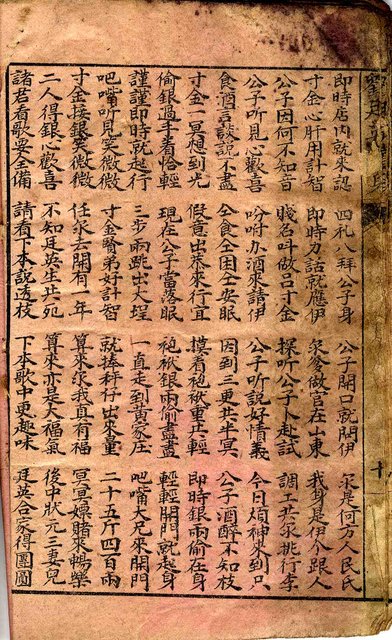 即時店內就來認 四礼八拜公子身 公子開口就問伊 汝是何方人民氏
寸金心肝用計智 即時刀話就應伊 爹做官在山東 我身是伊个跟人
公子因何不知音 賤名叫做呂寸金 探听公子卜赴試 調工共汝挑行李
公子听見心歡喜 吩咐办酒來請伊 公子听說好情義 今日煩神來到只
食酒言談說不盡 仝食仝困仝安眠 困到三更共半冥 公子酒醉不知枝
寸金一冥想到光 假意出恭來行宜 摸着袍袱重正輕 即時銀兩偷在身
偷銀過手看恰輕 現在公子當落眠 袍袱銀兩偷盡盡 輕輕開門就起身
謹謹即時就起行 三步兩跳出大埕 一直走到黃家庄 吧嘴大兄來開門
吧嘴听見笑微微 寸金賢弟好計智 就捧秤仔出來量 二十五斤四百兩
寸金接銀笑微微 任汝去開有一年 算來汝我真有福 冥冥嫖賭來暢樂
二人得銀心歡喜 不知廷英生共死 算來亦是大福氣 後中狀元三妻兒
諸君看歌要全備 請看下本說透枝 下本歌中更趣味 廷英合家得團圓